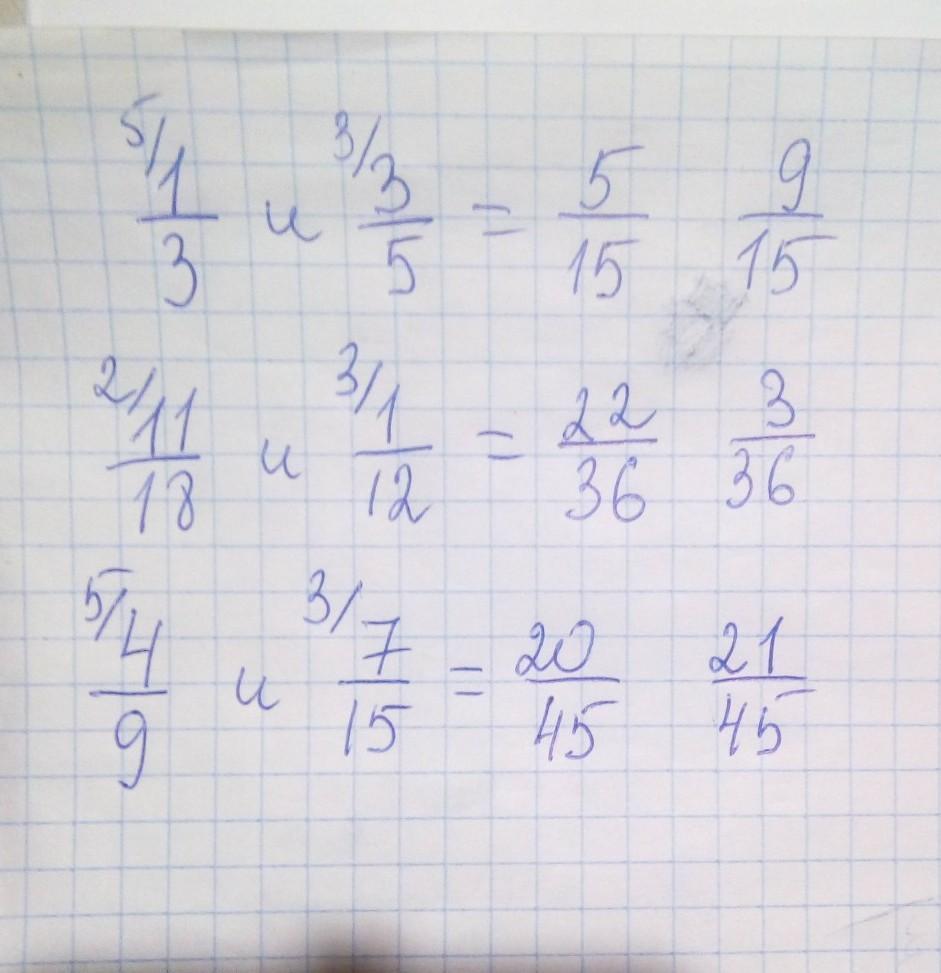 5/ 1/3 и 3/ 3/5 = 5/15 9/15
2/ 11/18 и 3/ 1/12 = 22/36 3/36
5/ 4/9 и 3/ 7/15 = 20/45 21/45